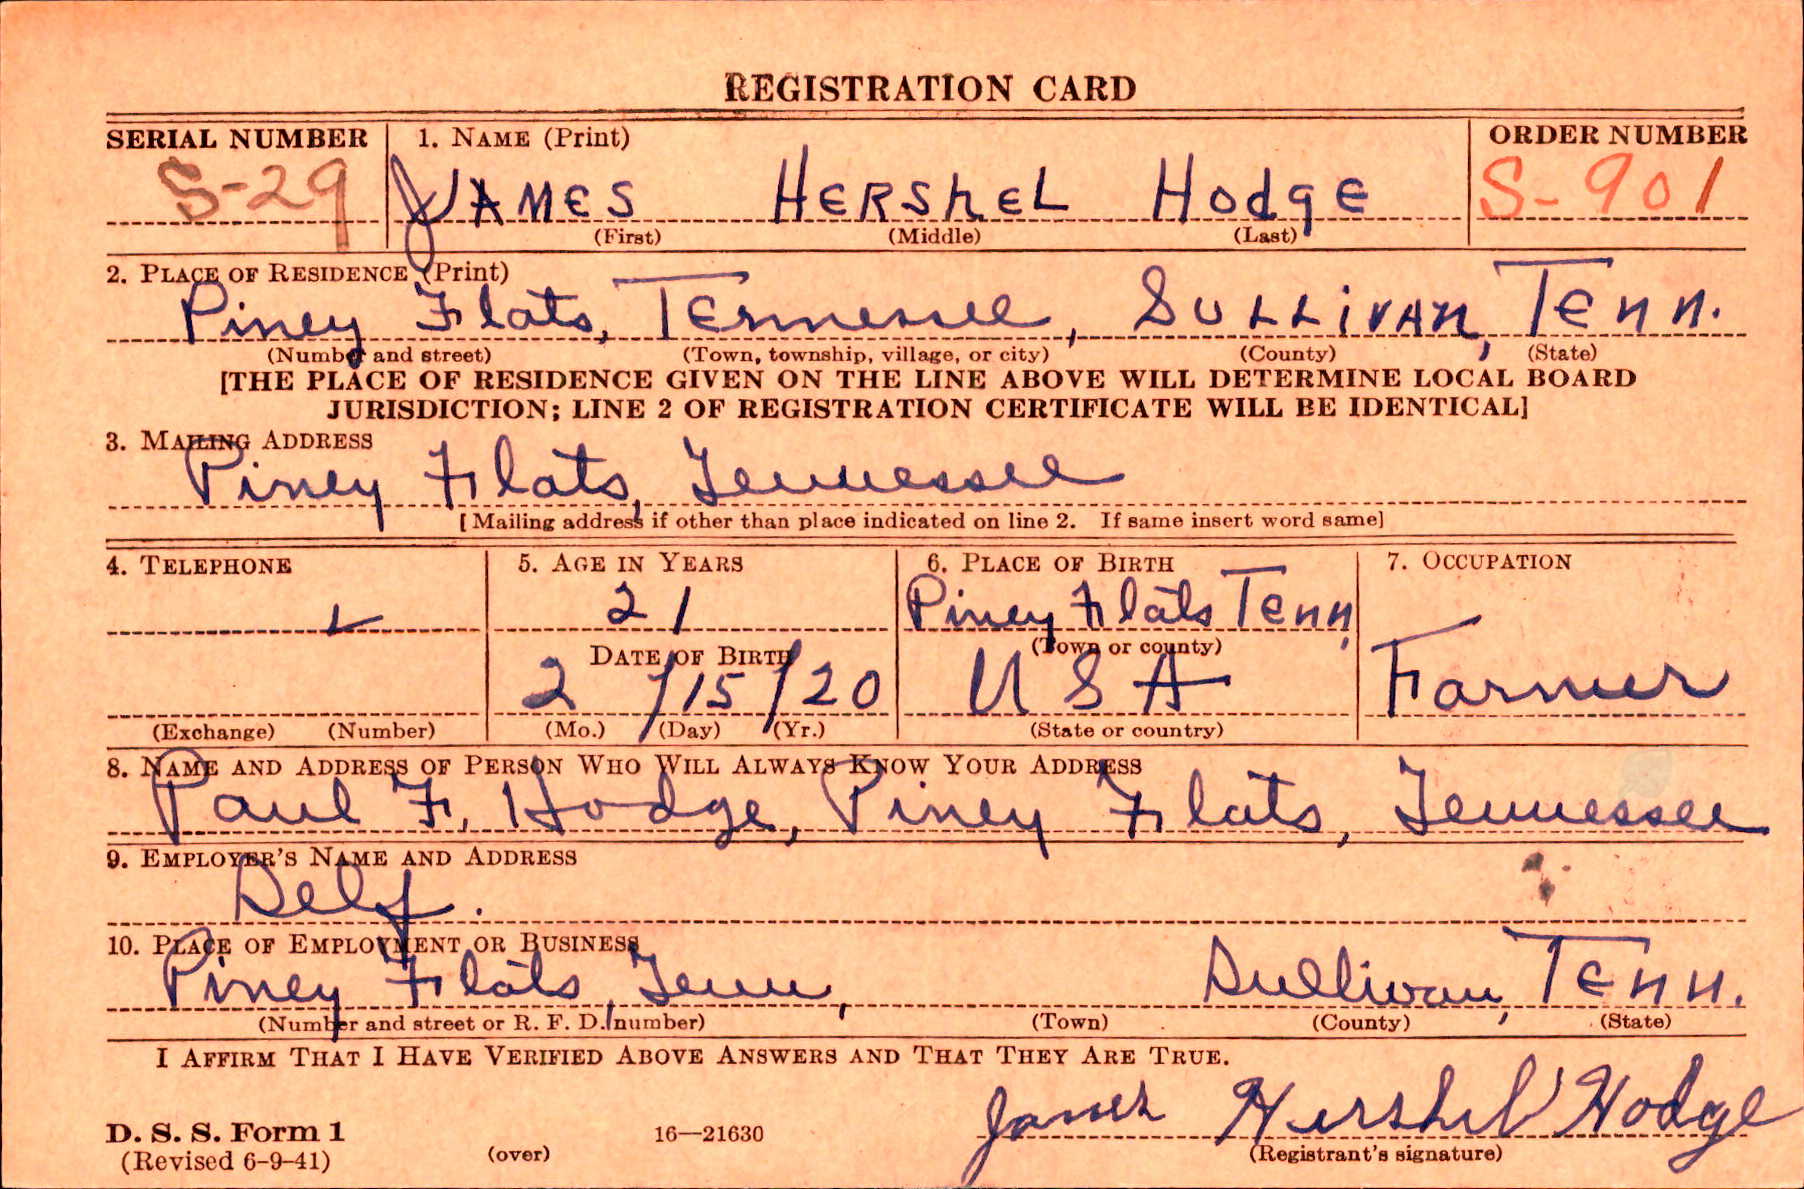 REGISTRATION CARD
SERIAL NUMBER 1. NAME (Print) ORDER NUMBER
S-29 JAMES HERSHEL Hodge S-901
(First) (Middle) (Last)
2. PLACE OF RESIDENCE (Print)
Piney Flats, Tennessee, Sullivan, Tenn.
(Number and street) (Town, township, village, or city) (County) (State)
[THE PLACE OF RESIDENCE GIVEN ON THE LINE ABOVE WILL DETERMINE LOCAL BOARD
JURISDICTION; LINE 2 OF REGISTRATION CERTIFICATE WILL BE IDENTICAL]
3. MAILING ADDRESS
Piney Flats, Tennessee
[Mailing address if other than place indicated on line 2. If same insert word same]
4. TELEPHONE 5. AGE IN YEARS 6. PLACE OF BIRTH 7. OCCUPATION
21 Piney Flats Tenn,
DATE OF BIRTH (Town or county)
2/15/20 USA Farmer
(Exchange) (Number) (Mo.) (Day) (Yr.) (State or country)
8. NAME AND ADDRESS OF PERSON WHO WILL ALWAYS KNOW YOUR ADDRESS
Paul F. Hodge, Piney Flats, Tennessee
9. EMPLOYER'S NAME AND ADDRESS
Self.
10. PLACE OF EMPLOYMENT OR BUSINESS
Piney Flats, Tenn, Sullivan, Tenn.
(Number and street or R. F. D. number) (Town) (County) (State)
I AFFIRM THAT I HAVE VERIFIED ABOVE ANSWERS AND THAT THEY ARE TRUE.
James Hershel Hodge
D. S. S. Form 1 16—21630
(Revised 6-9-41) (over) (Registrant's signature)